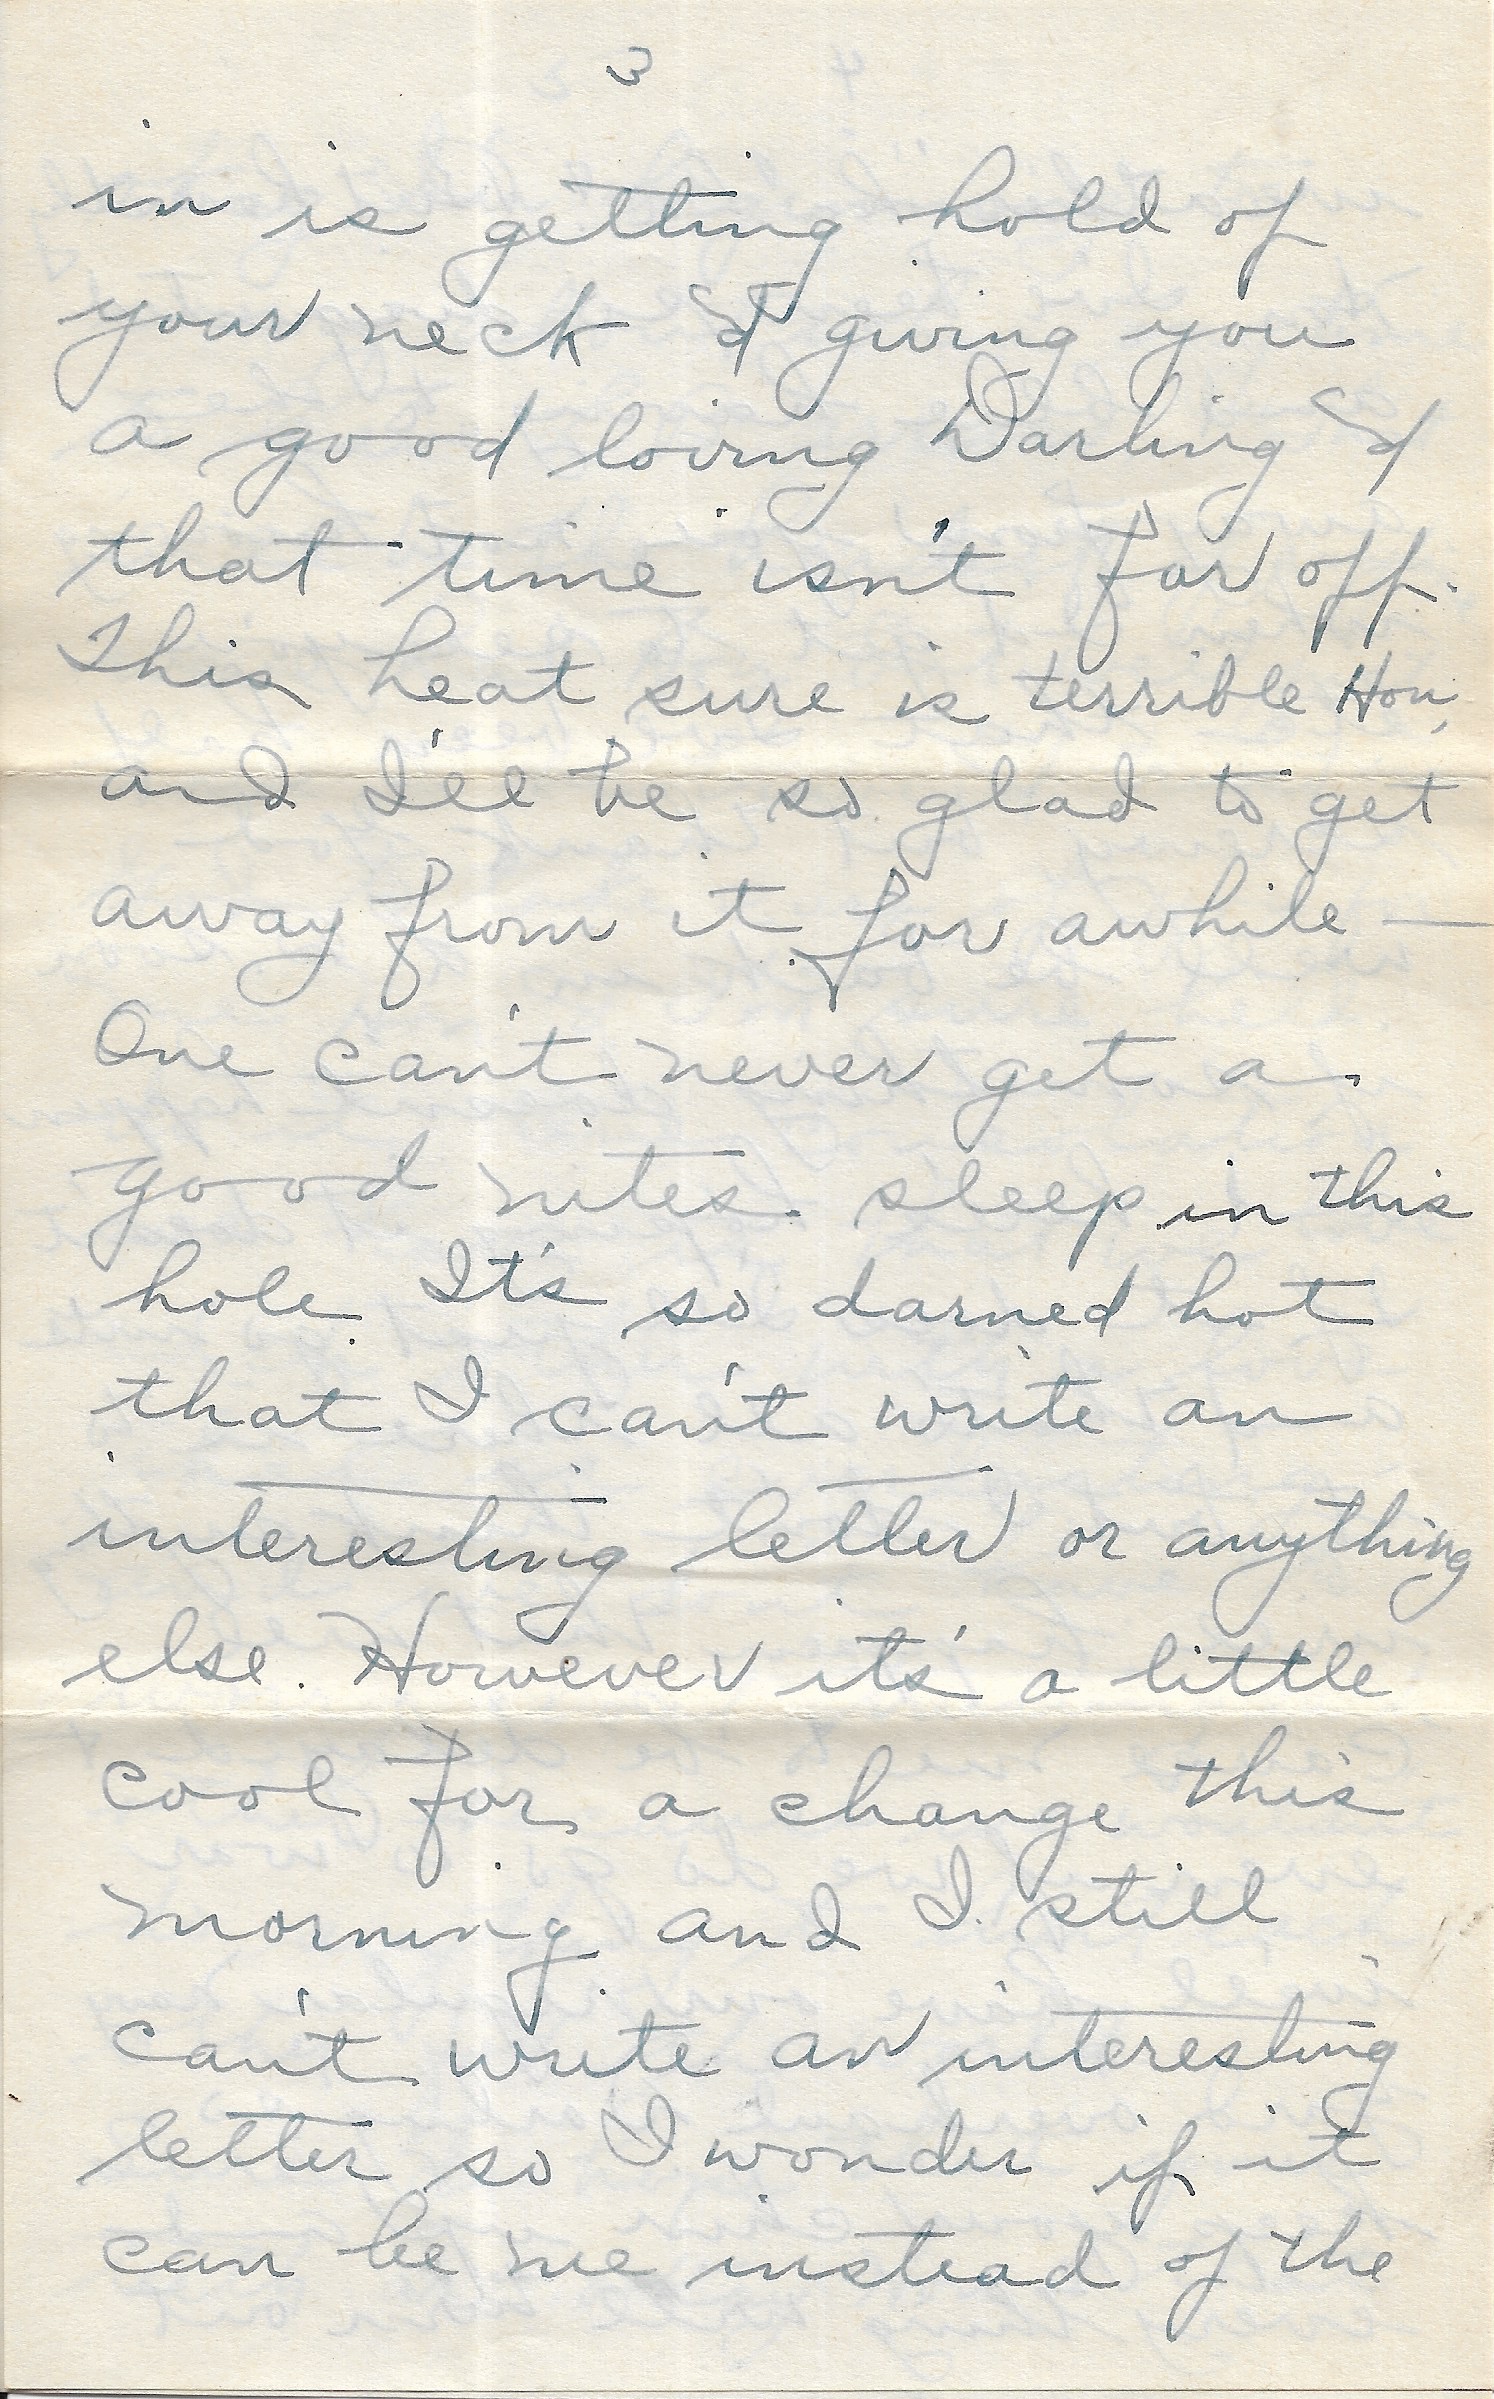 3
in is getting hold of
your neck & giving you
a good loving Darling &
that time isn't far off.
This heat sure is terrible Hon,
and I'll be so glad to get
away from it for awhile —
One can't never get a
good nites sleep in this
hole. It's so darned hot
that I can't write an
interesting letter or anything
else. However it's a little
cool for a change this
morning and I still
can't write an interesting
letter so I wonder if it
can be me instead of the